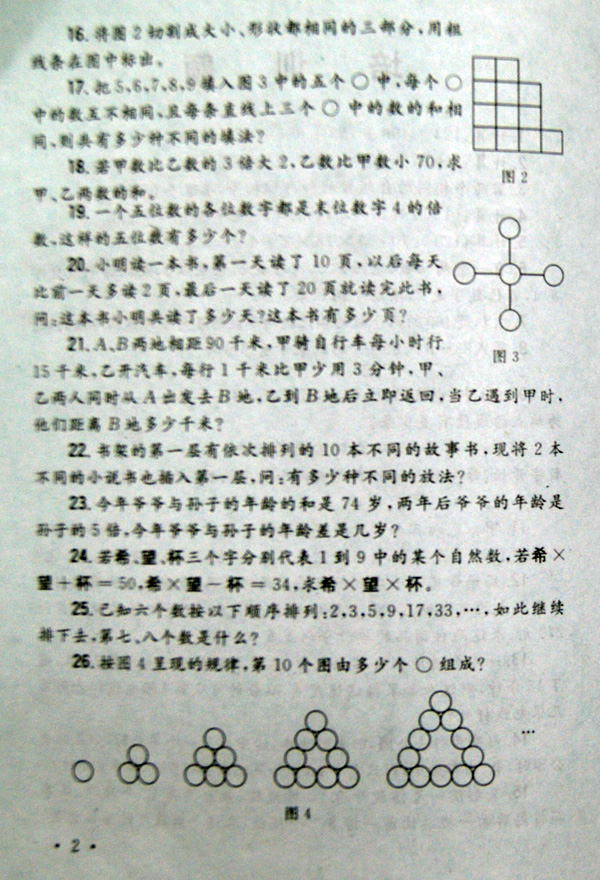 16. 将图2切割成大小、形状都相同的三部分,用粗
线条在图中标出。
17. 把5,6,7,8,9填入图3中的五个○中,每个○
中的数互不相同,且每条直线上三个○中的数的和相
同,则共有多少种不同的填法?
18. 若甲数比乙数的3倍大2,乙数比甲数小70,求
甲、乙两数的和。
图2
19. 一个五位数的各位数字都是末位数字4的倍
数,这样的五位数有多少个?
20. 小明读一本书,第一天读了10页,以后每天
比前一天多读2页,最后一天读了20页就读完此书,
问:这本书小明共读了多少天?这本书有多少页?
图3
21. A、B两地相距90千米,甲骑自行车每小时行
15千米,乙开汽车,每行1千米比甲少用3分钟,甲、
乙两人同时从A出发去B地,乙到B地后立即返回,当乙遇到甲时,
他们距离B地多少千米?
22. 书架的第一层有依次排列的10本不同的故事书,现将2本
不同的小说书也插入第一层,问:有多少种不同的放法?
23. 今年爷爷与孙子的年龄的和是74岁,两年后爷爷的年龄是
孙子的5倍,今年爷爷与孙子的年龄差是几岁?
24. 若希、望、杯三个字分别代表1到9中的某个自然数,若希×
望+杯=50,希×望-杯=34,求希×望×杯。
25. 已知六个数按以下顺序排列:2,3,5,9,17,33,…,如此继续
排下去,第七、八个数是什么?
26. 按图4呈现的规律,第10个图由多少个○组成?
…
图4
·2·